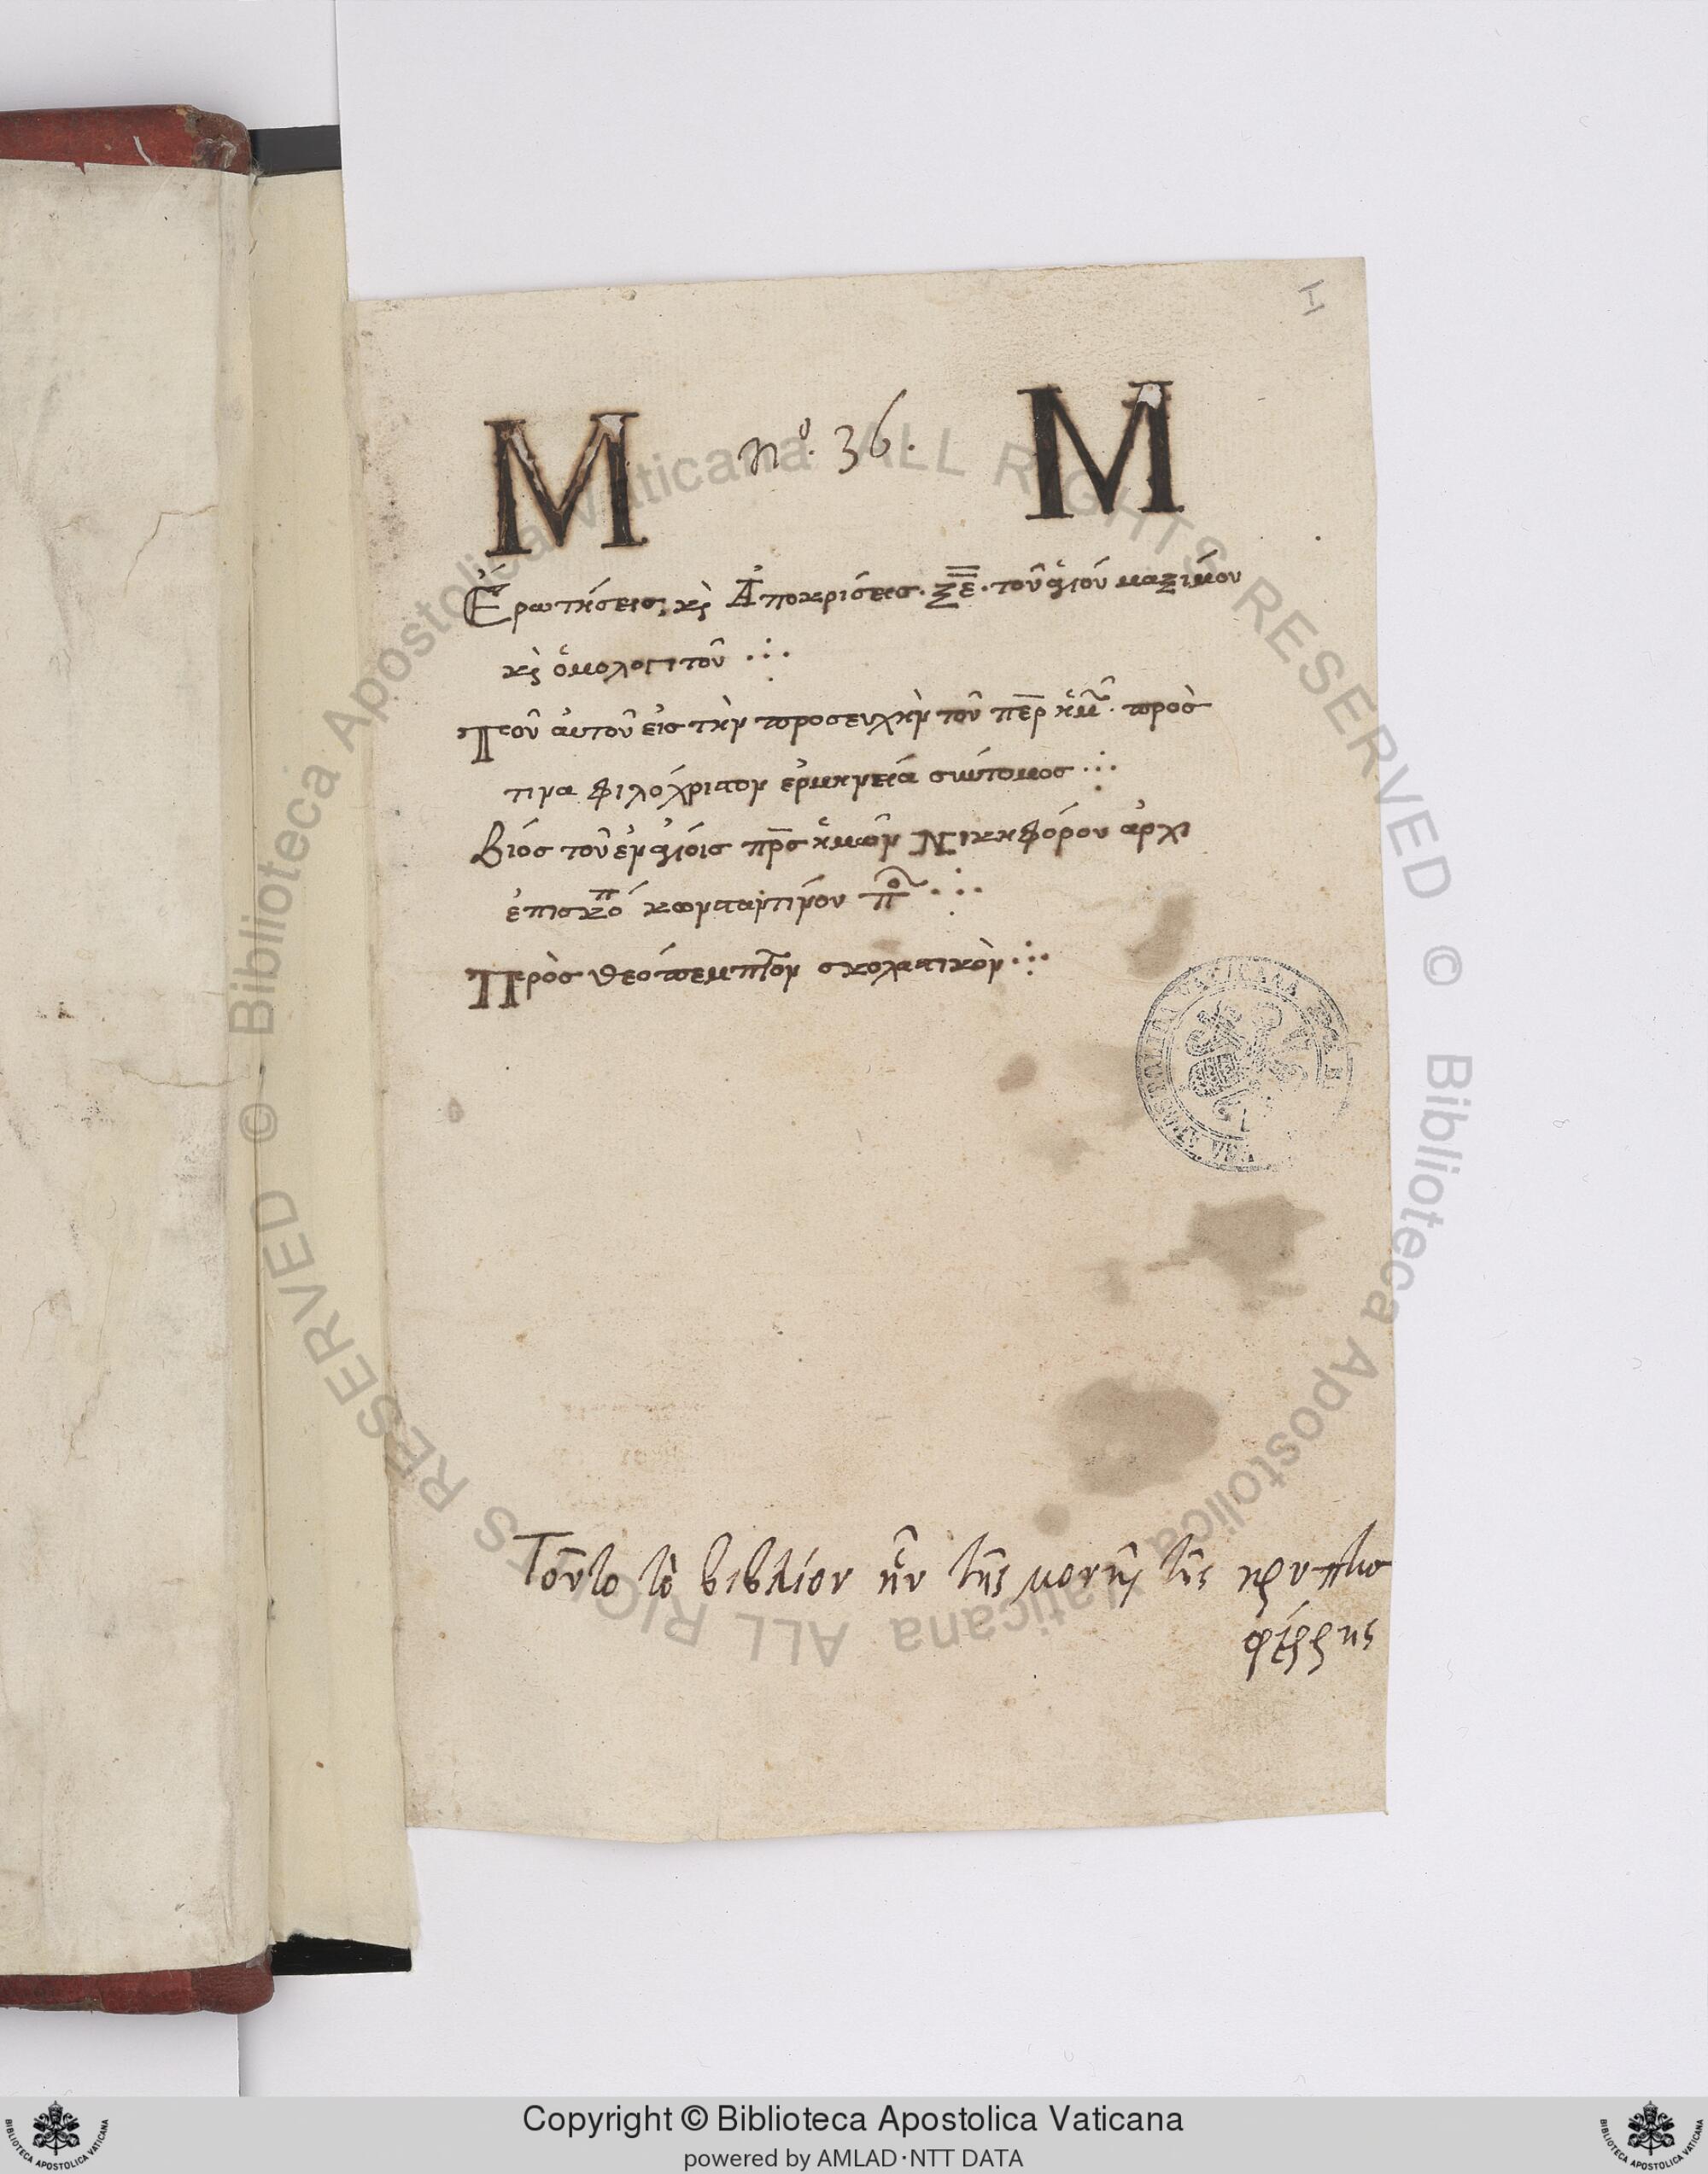 I
M nº. 36. M
Ἐρωτήσεις κὲ Ἀποκρίσεις · ξε · τοῦ ἁγίου μαξίμου
κὲ ὁμολογιτοῦ ∴
Τοῦ αὐτοῦ εἰς τὴν προσευχὴν τοῦ περ ἡμ. πρὸς
τινα φιλόχριστον ἑρμηνεία σύντομος ∴
Βίος τοῦ ἐν ἁγίοις πρς ἡμῶν Νικηφόρου ἀρχι
ἐπισκόπ κωνσταντίνου π ∴
Πρὸς θεόπεμπτον σχολαστικὸν ∴
Τοῦτο τὸ βιβλίον ἦν τῆς μονῆς τῆς κρυπτο
φέρρης
Copyright © Biblioteca Apostolica Vaticana
powered by AMLAD·NTT DATA
© Biblioteca Apostolica Vaticana ALL RIGHTS RESERVED
© Biblioteca Apostolica Vaticana ALL RIGHTS RESERVED
BIBLIOTECA APOSTOLICA VATICANA
BIBLIOTECA APOSTOLICA VATICANA